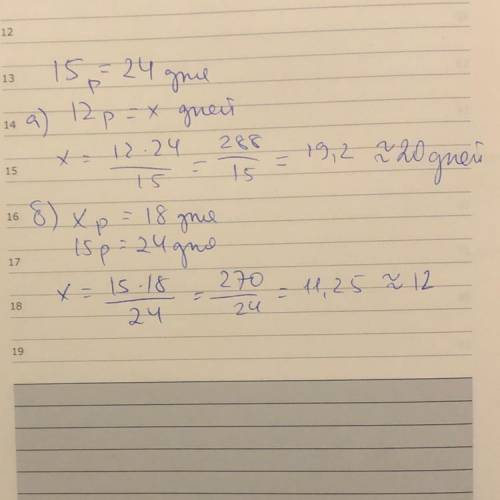 12
13 15р = 24 дня
14 а) 12р = x дней
15 x = 12·24/15 = 288/15 = 19,2 ≈ 20 дней
16 б) xр = 18 дня
17 15р = 24 дня
18 x = 15·18/24 = 270/24 = 11,25 ≈ 12
19